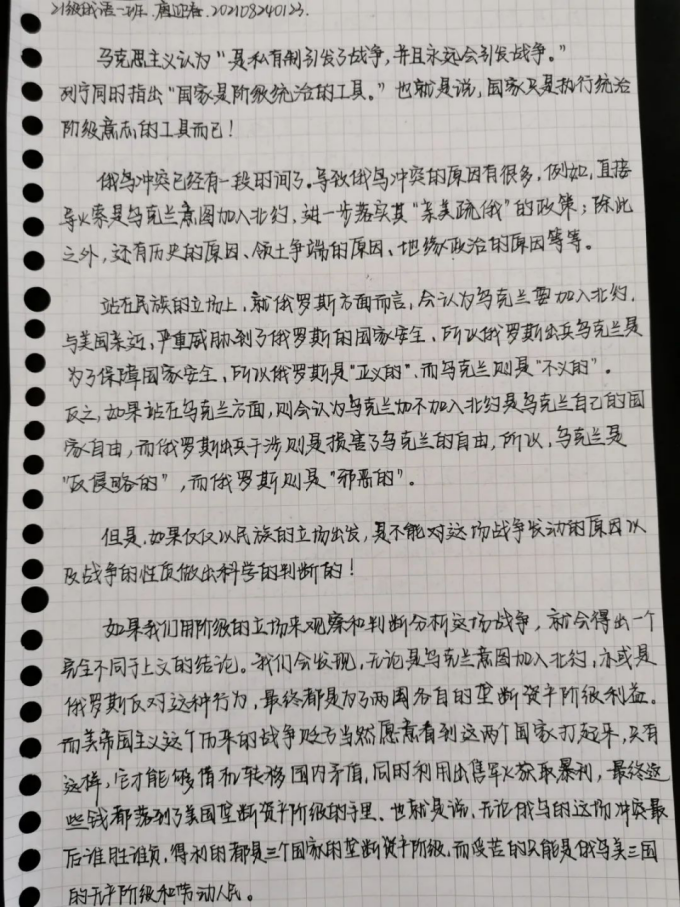 21级俄语一班.唐迎春.202108240123.
马克思主义认为“是私有制引发了战争,并且永远会引发战争。”
列宁同时指出“国家是阶级统治的工具。”也就是说,国家只是执行统治
阶级意志的工具而已!
俄乌冲突已经有一段时间了。导致俄乌冲突的原因有很多,例如,直接
导火索是乌克兰意图加入北约,进一步落实其“亲美疏俄”的政策;除此
之外,还有历史的原因、领土争端的原因、地缘政治的原因等等。
站在民族的立场上,就俄罗斯方面而言,会认为乌克兰要加入北约,
与美国亲近,严重威胁到了俄罗斯的国家安全,所以俄罗斯出兵乌克兰是
为了保障国家安全,所以俄罗斯是“正义的”,而乌克兰则是“不义的”。
反之,如果站在乌克兰方面,则会认为乌克兰加不加入北约是乌克兰自己的国
家自由,而俄罗斯出兵干涉则是损害了乌克兰的自由,所以,乌克兰是
“反侵略的”,而俄罗斯则是“邪恶的”。
但是,如果仅仅以民族的立场出发,是不能对这场战争发动的原因以
及战争的性质做出科学的判断的!
如果我们用阶级的立场来观察和判断分析这场战争,就会得出一个
完全不同于上文的结论。我们会发现,无论是乌克兰意图加入北约,亦或是
俄罗斯反对这种行为,最终都是为了两国各自的垄断资产阶级利益。
而美帝国主义这个历来的战争贩子当然愿意看到这两个国家打起来,只有
这样,它才能够借机转移国内矛盾,同时利用出售军火获取暴利,最终这
些钱都落到了美国垄断资产阶级的手里。也就是说,无论俄乌的这场冲突最
后谁胜谁负,得利的都是三个国家的垄断资产阶级,而受苦的只能是俄乌美三国
的无产阶级和劳动人民。